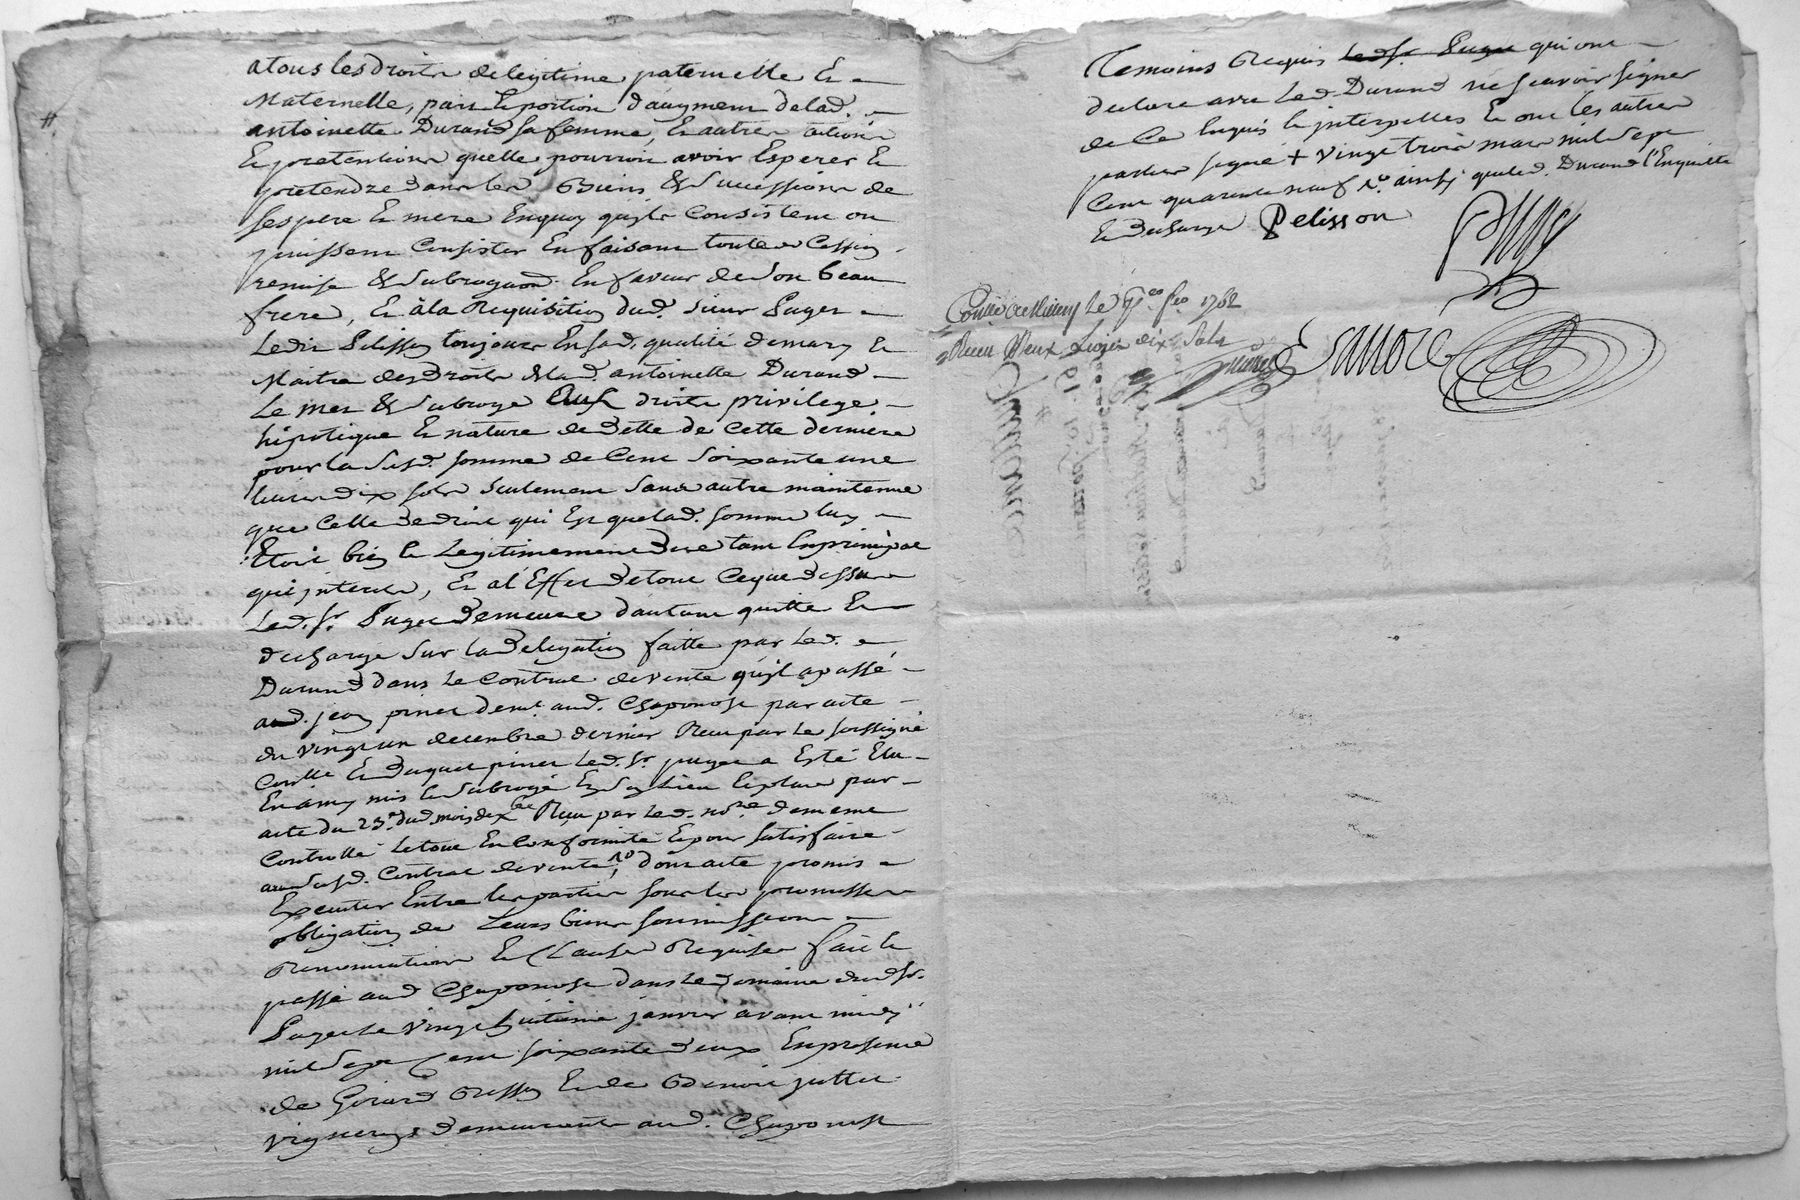 atous les droits de legitime paternelle Et
Maternelle, part Et portion d'augment delad.
antoinette Durand sa femme, Et autres actions
Et pretentions quelle pourroit avoir Esperer Et
pretendre dans les Biens & Successions de
ses pere Et mere Enquoy quils Consistent ou
puissent Consister En faisant toute Cession
remise & Subrogation En faveur de Son beau
frere, Et à la Requisition dud. Sieur Puger
Ledit Pelisson toujours En sad. qualité de mary Et
Maitre des Droits delad. antoinette Durand
Le met & Subroge aux droits privilege
hipotique Et nature de Dette de Cette derniere
pour la Susd. somme de Cent Soixante une
livres dix sols Seulement Sans autre maintenue
que Celle de dire qui Est quelad. somme luy
Etoit bien Et Legitimement Due tant En principal
qu'interets, Et a l'Effet de tout Ceque dessus
Led. Sr. Puger Demeure d'autant quitte Et
decharge Sur la Delegation faitte par Led.
Durand dans Le Contrat de vente quil a passé
aud. jean pinet demt. aud. Chaponost par acte
du vingt un decembre dernier Reçu par Le soussigné
Conllé Et Duquel pinet Led. Sr. puger a Esté Elu
En amy mis Et Subrogé En Son Lieu Et place par
acte du 23e. dud. mois de xbre Reçu par Led. nore. de meme
Controllé Le tout En Conformité Et pour Satisfaire
au Susd. Contrat de vente, dont acte promis
Executer Entre les parties sous les promesses
obligation de Leurs biens soumissions
Renonciations Et Clauses Requises fait Et
passé aud Chaponost dans Le Domaine dud Sr.
Puger Le vingt huitieme janvier avant midy
mil Sept Cent soixante Deux En presence
de Girard Et de Benoit
vignerons demeurants aud. Chaponost
Temoins Requis Led. Sr. Puger qui ont
declare avec Led. Durand ne scavoir signer
de Ce Enquis Et interpelles Et ont les autres
parties signé + vingt trois mars mil Sept
Cent quarante neuf ainsy que led. Durand l'Enquitte
Et decharge Pelisson
Puger
Conllé a Le fro 1762
Reçu Deux Livres dix Sols